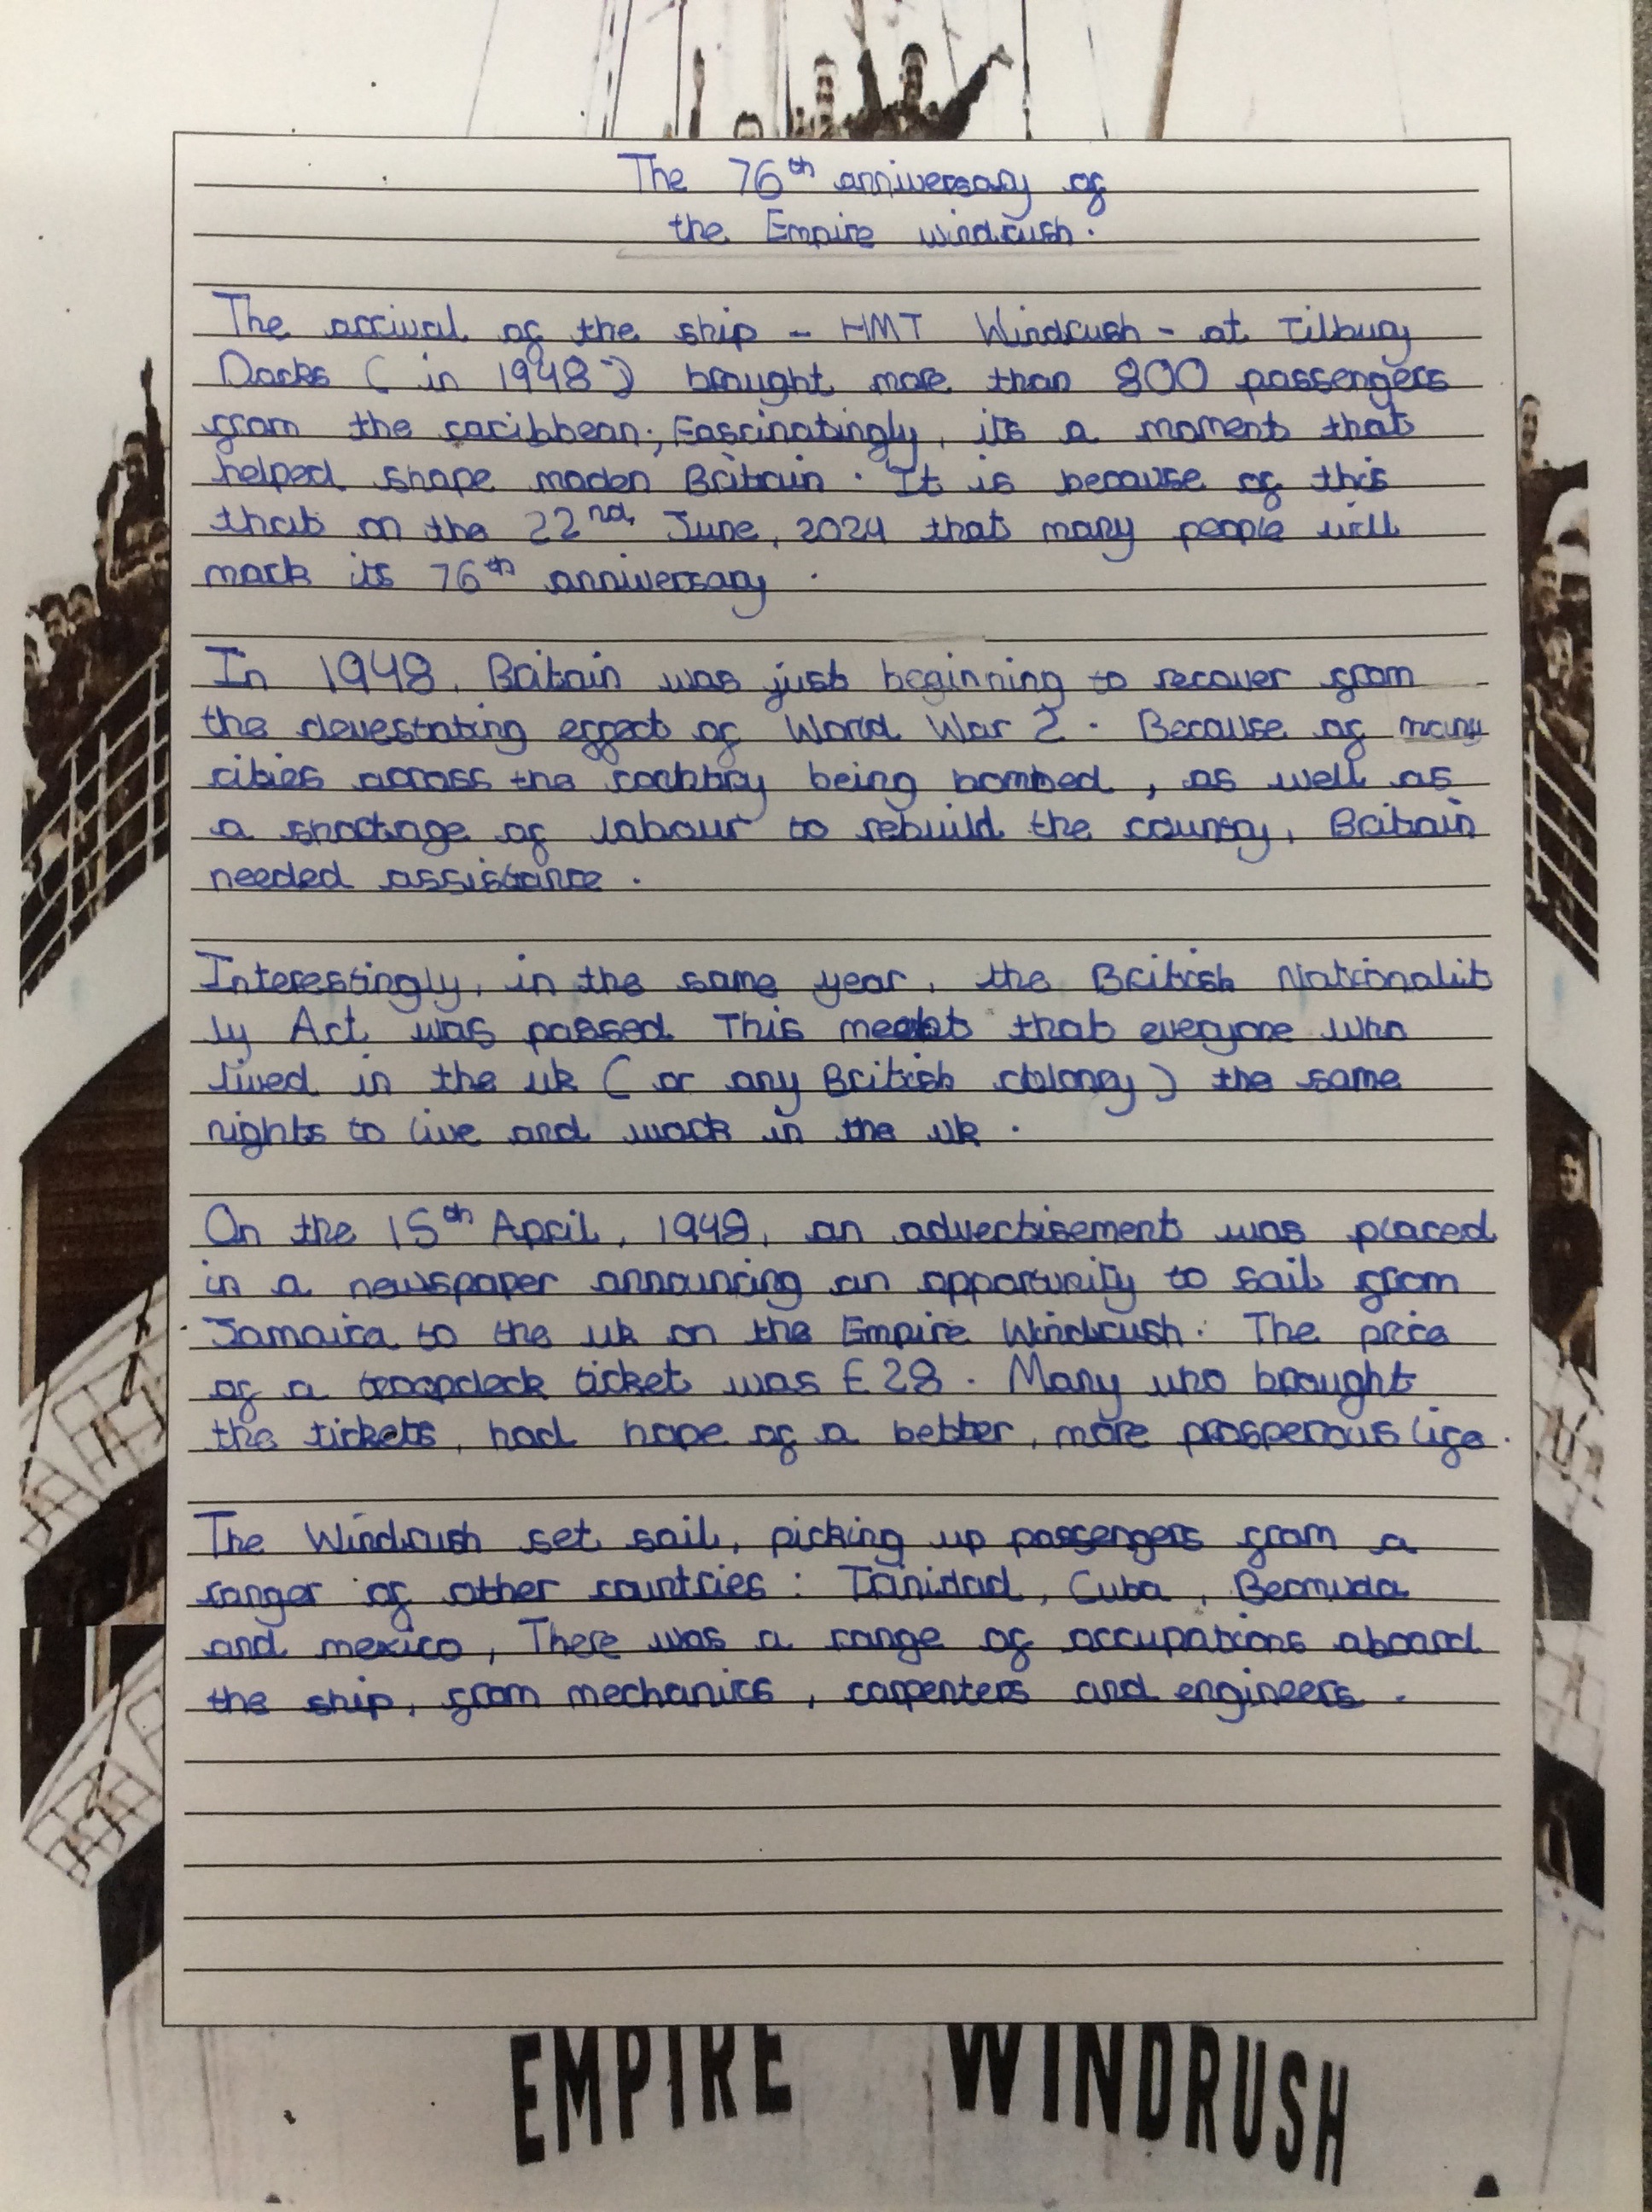 The 76th anniversary of
the Empire windrush.
The arrival of the ship - HMT Windrush - at Tilbury
Docks (in 1948) brought more than 800 passengers
from the caribbean; Fascinatingly, its a moment that
helped shape moden Britain. It is because of this
that on the 22nd June, 2024 that many people will
mark its 76th anniversary.
In 1948, Britain was just beginning to recover from
the devestating effect of World War 2. Because of many
cities across the being bombed, as well as
a shortage of labour to rebuild the country, Britain
needed assistance.
Interestingly, in the same year, the British Nationalit
ly Act was passed This meant that everyone who
lived in the uk (or any British coloney) the same
rights to live and work in the uk.
On the 15th April, 1948, an advertisement was placed
in a newspaper announcing an opportunity to sail from
Jamaica to the uk on the Empire Windrush. The price
of a troopdeck ticket was £28. Many who brought
the tickets, had hope of a better, more prosperous life.
The Windrush set sail, picking up passengers from a
ranger of other countries: Trinidad, Cuba, Bermuda
and mexico, There was a range of occupations aboard
the ship, from mechanics, carpenters and engineers.
EMPIRE WINDRUSH